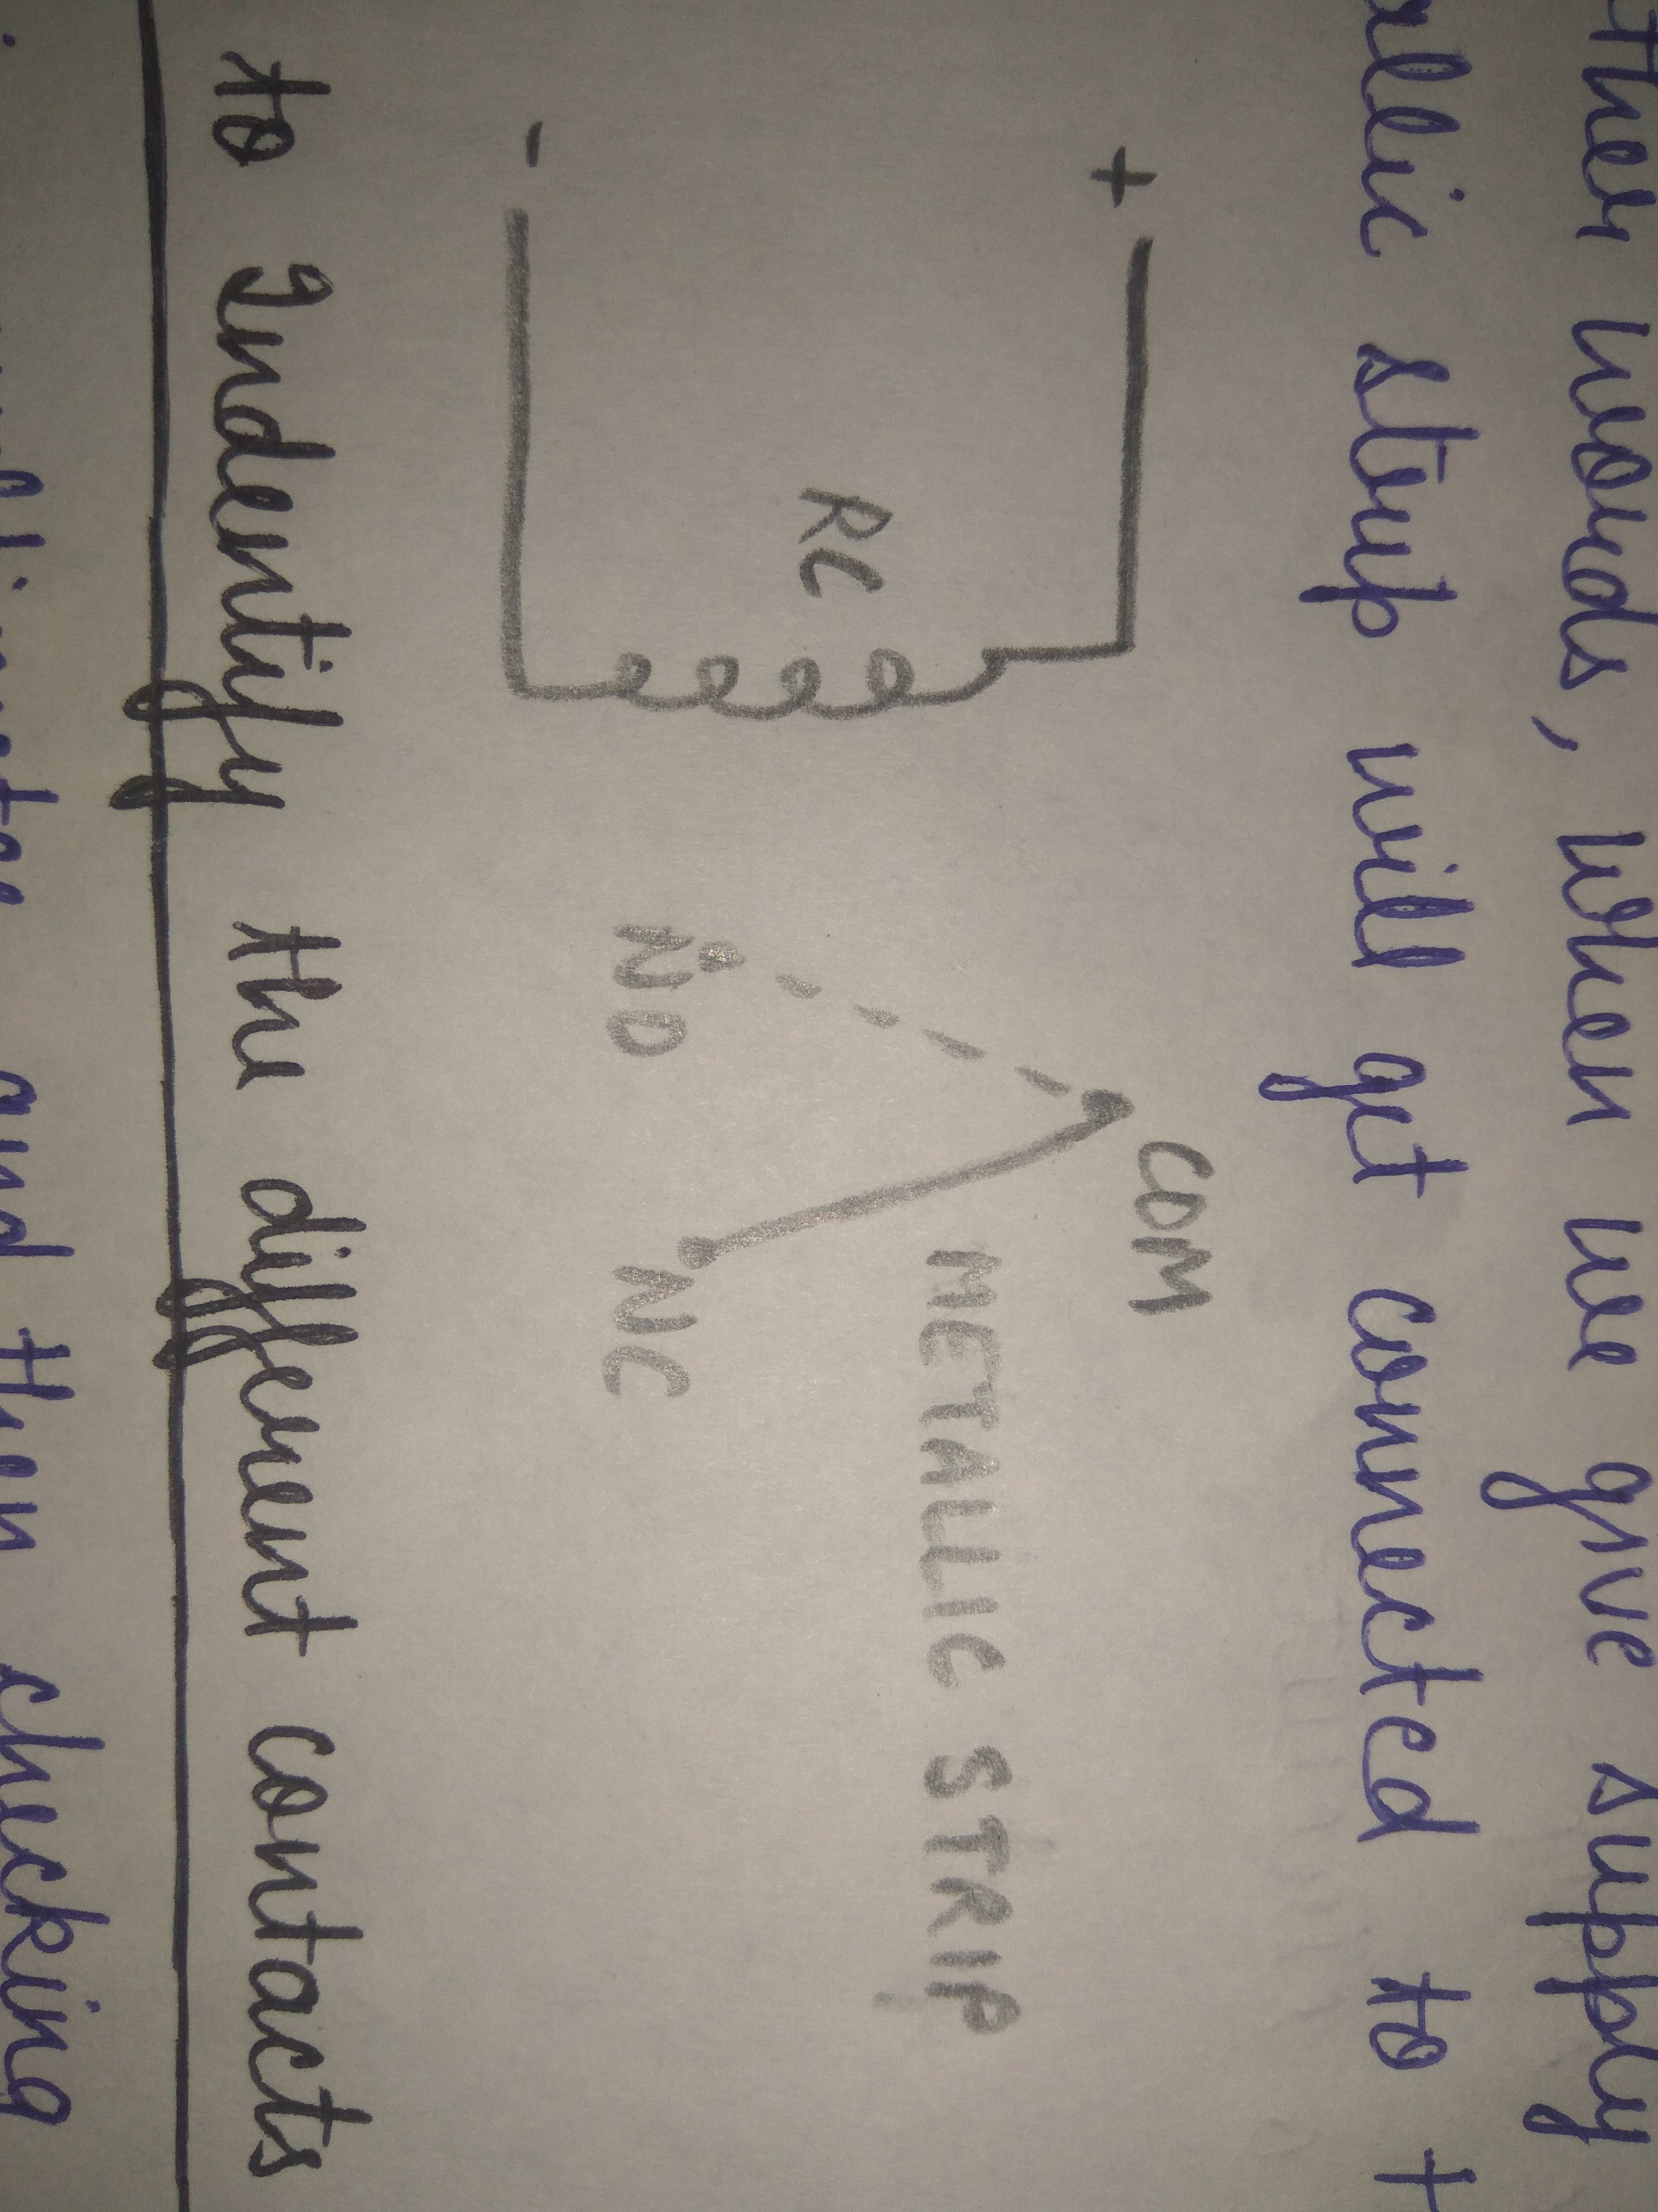 ther words, when we give supply
allic strip will get connected to t
+
COM
RC
METALLIC STRIP
NO
NC
-
to Indentify the different contacts
and then checking